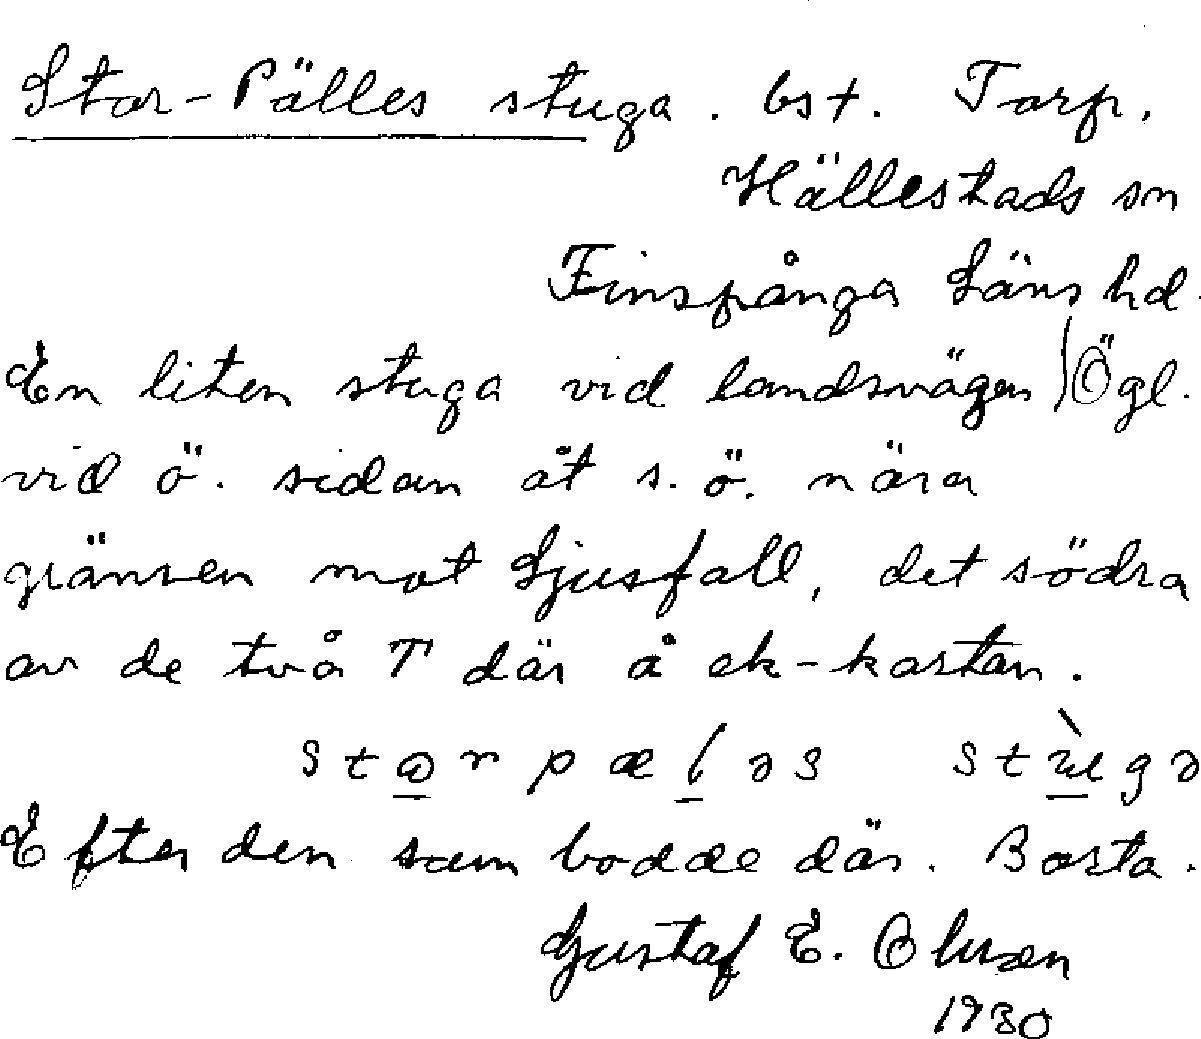 Stor-Pälles stuga. bst. Torp.
Hällestads sn
Finspånga Läns hd.
En liten stuga vid landsvägen / Ögl.
vid ö. sidan åt s.ö. nära
gränsen mot Ljusfall, det södra
av de två T där å ek-kartan.
Efter den som bodde där. Borta.
Gustaf E. Olsson
1930